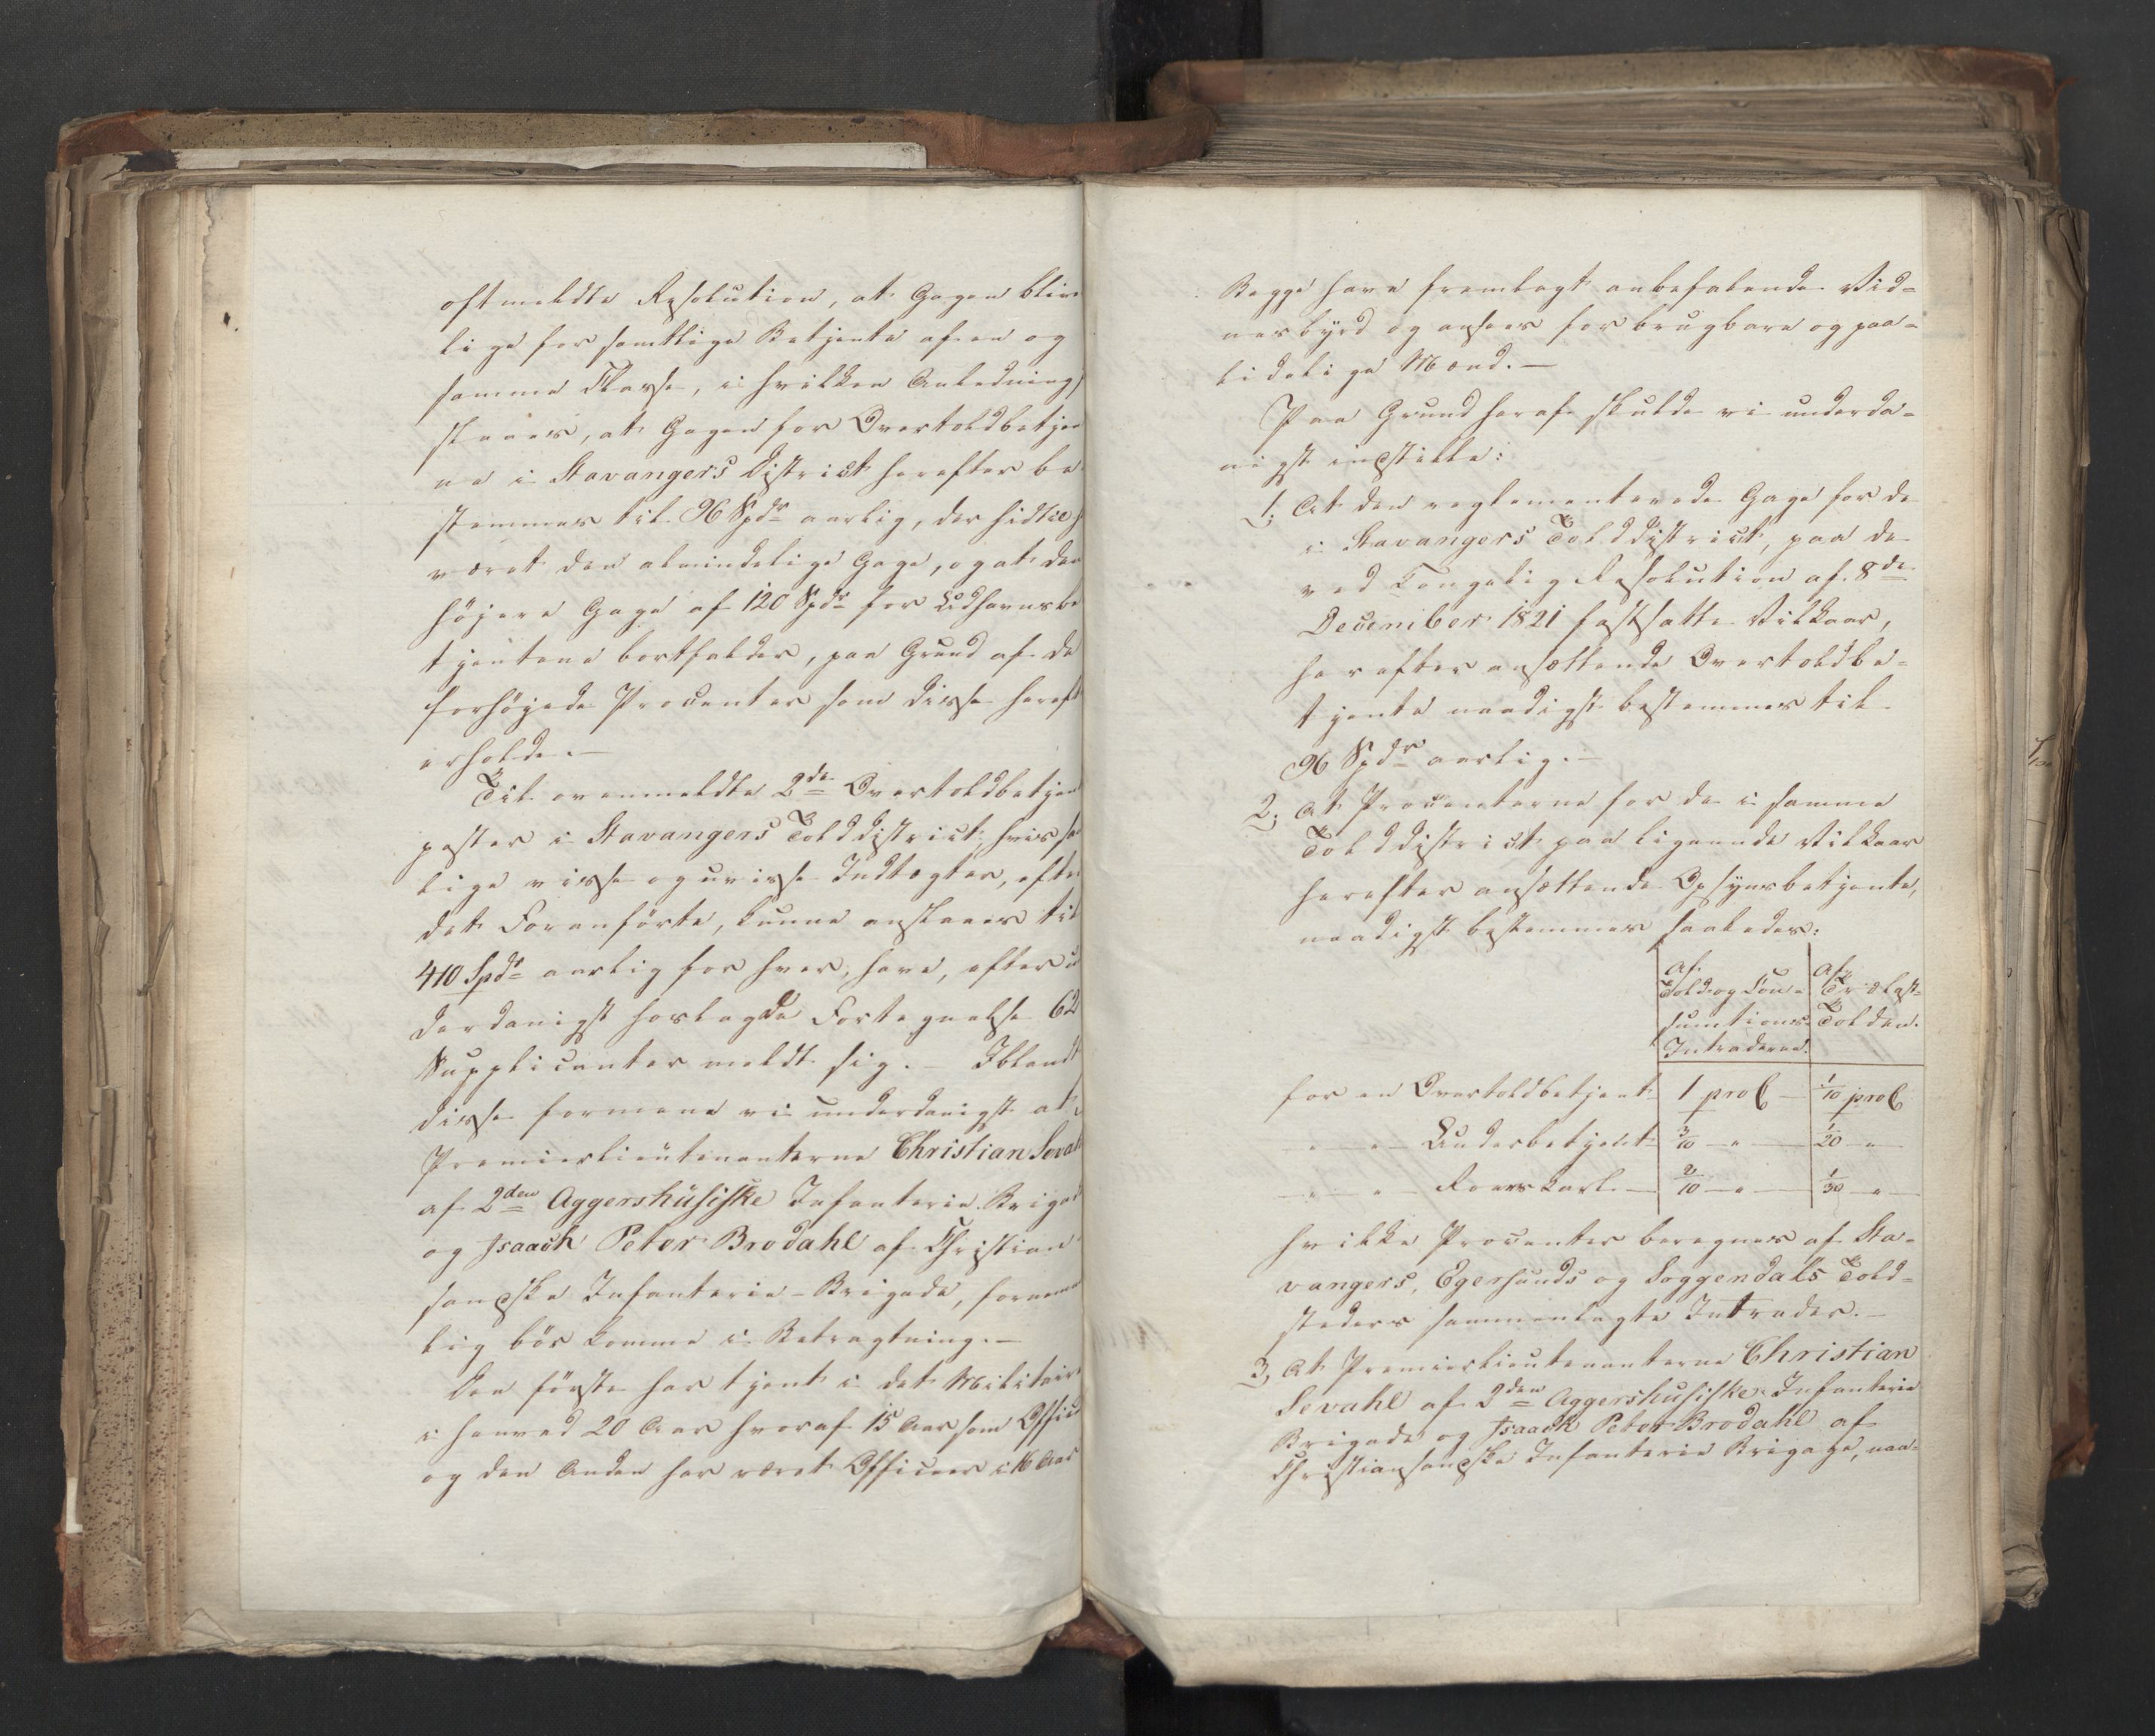 oftmeldte Resolution, at Gagen blive
lige for samtlige Betjente af en og
samme Classe, i hvilken Anledning
skeer, at Gagen for Overtoldbetjen
ne i Stavangers District herefter be
stemmes til 96 Spdr aarlig, der hidtil
været den almindelige Gage, og at den
höjere Gage af 120 Spdr for Udhavnsbe
tjentene bortfalder, paa Grund af de
forhöjede Procenter som disse hereft
erholde.—
Til ovenmeldte 2de Overtoldbetjen
poster i Stavangers Tolddistrict, hvis
lige visse og uvisse Indtægter, efter
det Foranförte, kunne ansees til
410 Spdr aarlig for hver, have, efter u
derdanigst hoslagde Fortegnelse 62
Supplicanter meldt sig. — Iblandt
disse formene vi underdanigst at
Premierlieutenanterne Christian Sevahl
af 2den Aggershusiske Infanterie Brigade
og Isaach Peter Brodahl af Christian
sandske Infanterie-Brigade, fornemme
lig bör komme i Betragtning.—
Den förste har tjent i det Militaire
i henved 20 Aar hvoraf 15 Aar som Officer
og den Anden har været Officeer i 16 Aar
Begge have fremlagt anbefalende Vid=
nesbyrd og ansees for brugbare og paa=
lidelige Mænd.—
Paa Grund heraf skulde vi underda=
nigst indstille:
1; At den reglementerede Gage for de
i Stavangers Tolddistrict, paa de
ved Kongelig Resolution af 8de
December 1821 fastsatte Vilkaar,
herefter ansættende Overtoldbe=
tjente naadigst bestemmes til
96 Spdr aarlig.—
2; At Procenterne for de i samme
Tolddistrict paa lignende Vilkaar
herefter ansættende Opsynsbetjente,
naadigst bestemmes saaledes:
Af Told og Con=sumtions Intraderne. Af Trælast=Tolden.
for en Overtoldbetjent 1 proC — 1/10 proC
— „ — „ — Underbetjent 3/10 — „ — 1/20 — „ —
— „ — „ — Roerskarl — 2/10 — „ — 1/30 — „ —
hvilke Procenter beregnes af Sta=
vangers, Egersunds og Soggendals Told=
steders sammenlagte Intrader.—
3, At Premierlieutenanterne Christian
Sevahl af 2den Aggershusiske Infanterie
Brigade og Isaack Peter Brodahl af
Christiansandske Infanterie Brigage, naa=